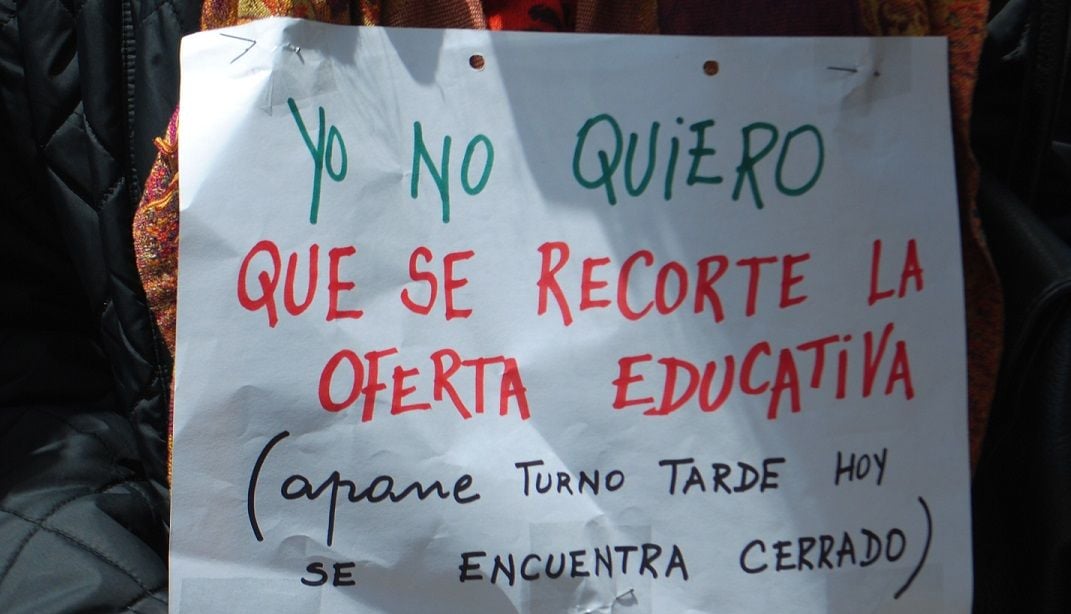 Yo NO QUiERO
QUE SE RECORTE LA
OFERTA EDUCATiVA
(apane TURNO TARDE HOY
SE ENCUENTRA CERRADO)